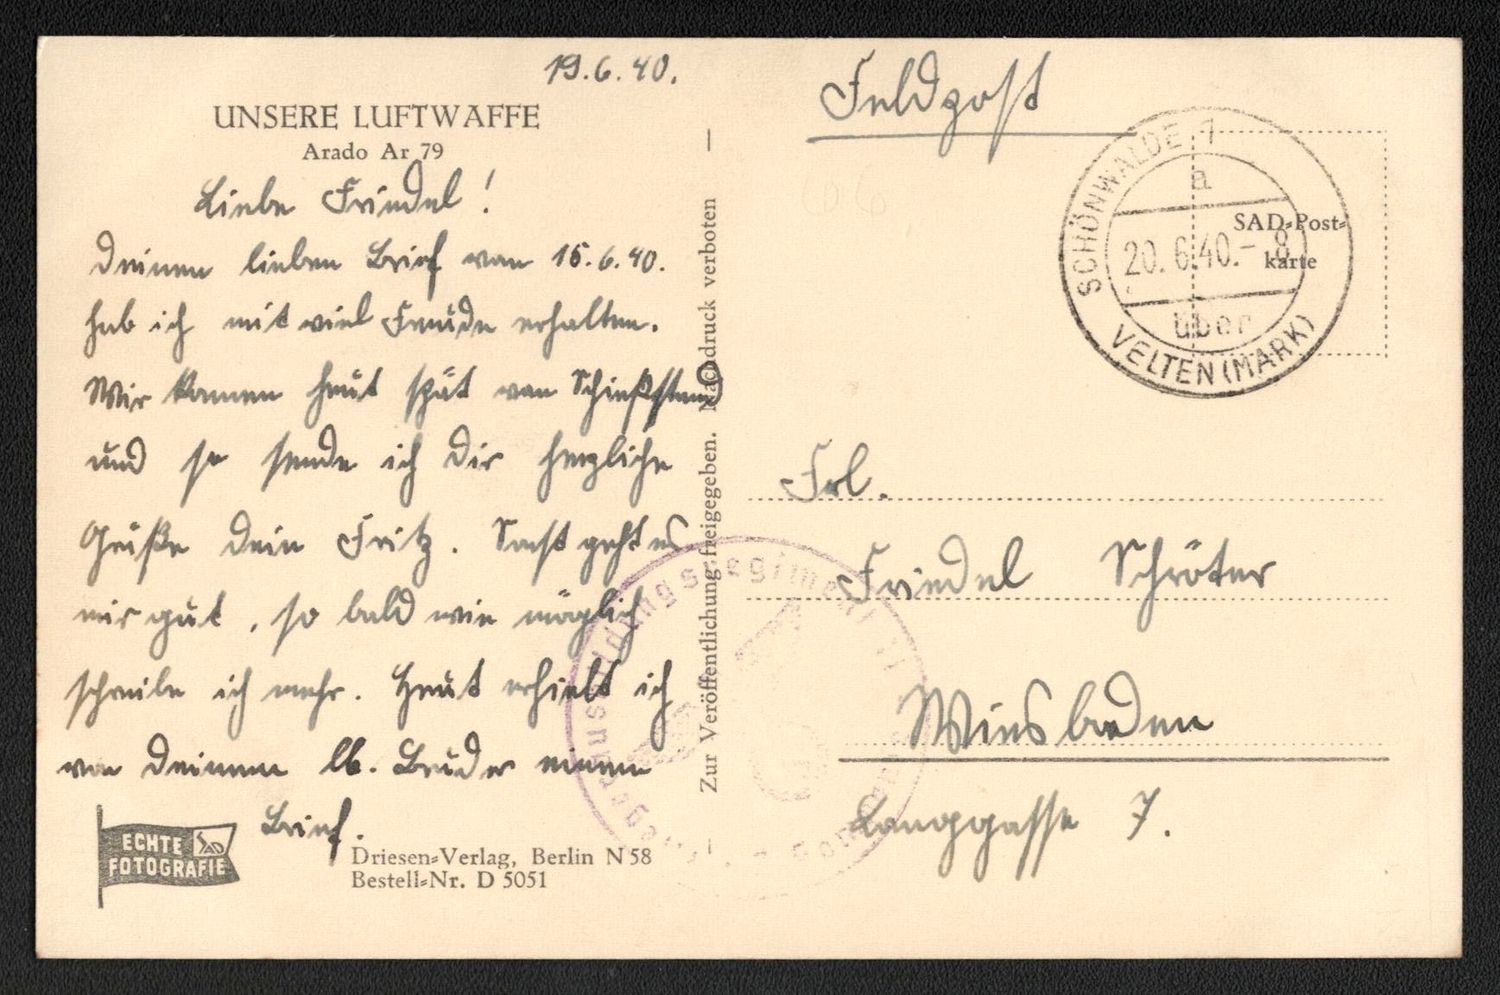 19.6.40.
UNSERE LUFTWAFFE
Arado Ar 79
Liebe Friedel!
Deinen lieben Brief vom 15.6.40.
hab ich mit viel Freude erhalten.
Wir kamen heut spät vom Schießstand
und so sende ich dir herzliche
Grüße dein Fritz. Sonst geht es
mir gut, so bald wie möglich
schreibe ich mehr. Heut erhielt ich
von deinem lb. Bruder einen
Brief.
ECHTE
FOTOGRAFIE
SAD
Driesen-Verlag, Berlin N 58
Bestell-Nr. D 5051
Zur Veröffentlichung freigegeben. Nachdruck verboten
Feldpost
SCHÖNWALDE 1
a
20.6.40.-8
über
VELTEN (MARK)
SAD-Post-
karte
Frl.
Friedel Schröter
Wiesbaden
Langgasse 7.